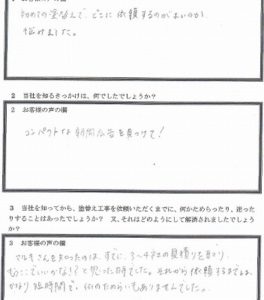 初めての塗替えで、どこに依頼するのがよいのか
悩みました。
2 当社を知るきっかけは、何でしたでしょうか?
2 お客様の声の欄
コンパクトな新聞広告を見つけて!
3 当社を知ってから、塗替え工事を依頼いただくまでに、何かためらったり、迷った
りすることはあったでしょうか? 又、それはどのようにして解消されましたでしょう
か?
3 お客様の声の欄
マルキさんを知ったのは、すでに、3~4社の見積りをとり、
もうここでいいかな!?と思った時でした。それから依頼するまでは、
かなり短時間で、何のためらいもありませんでした。